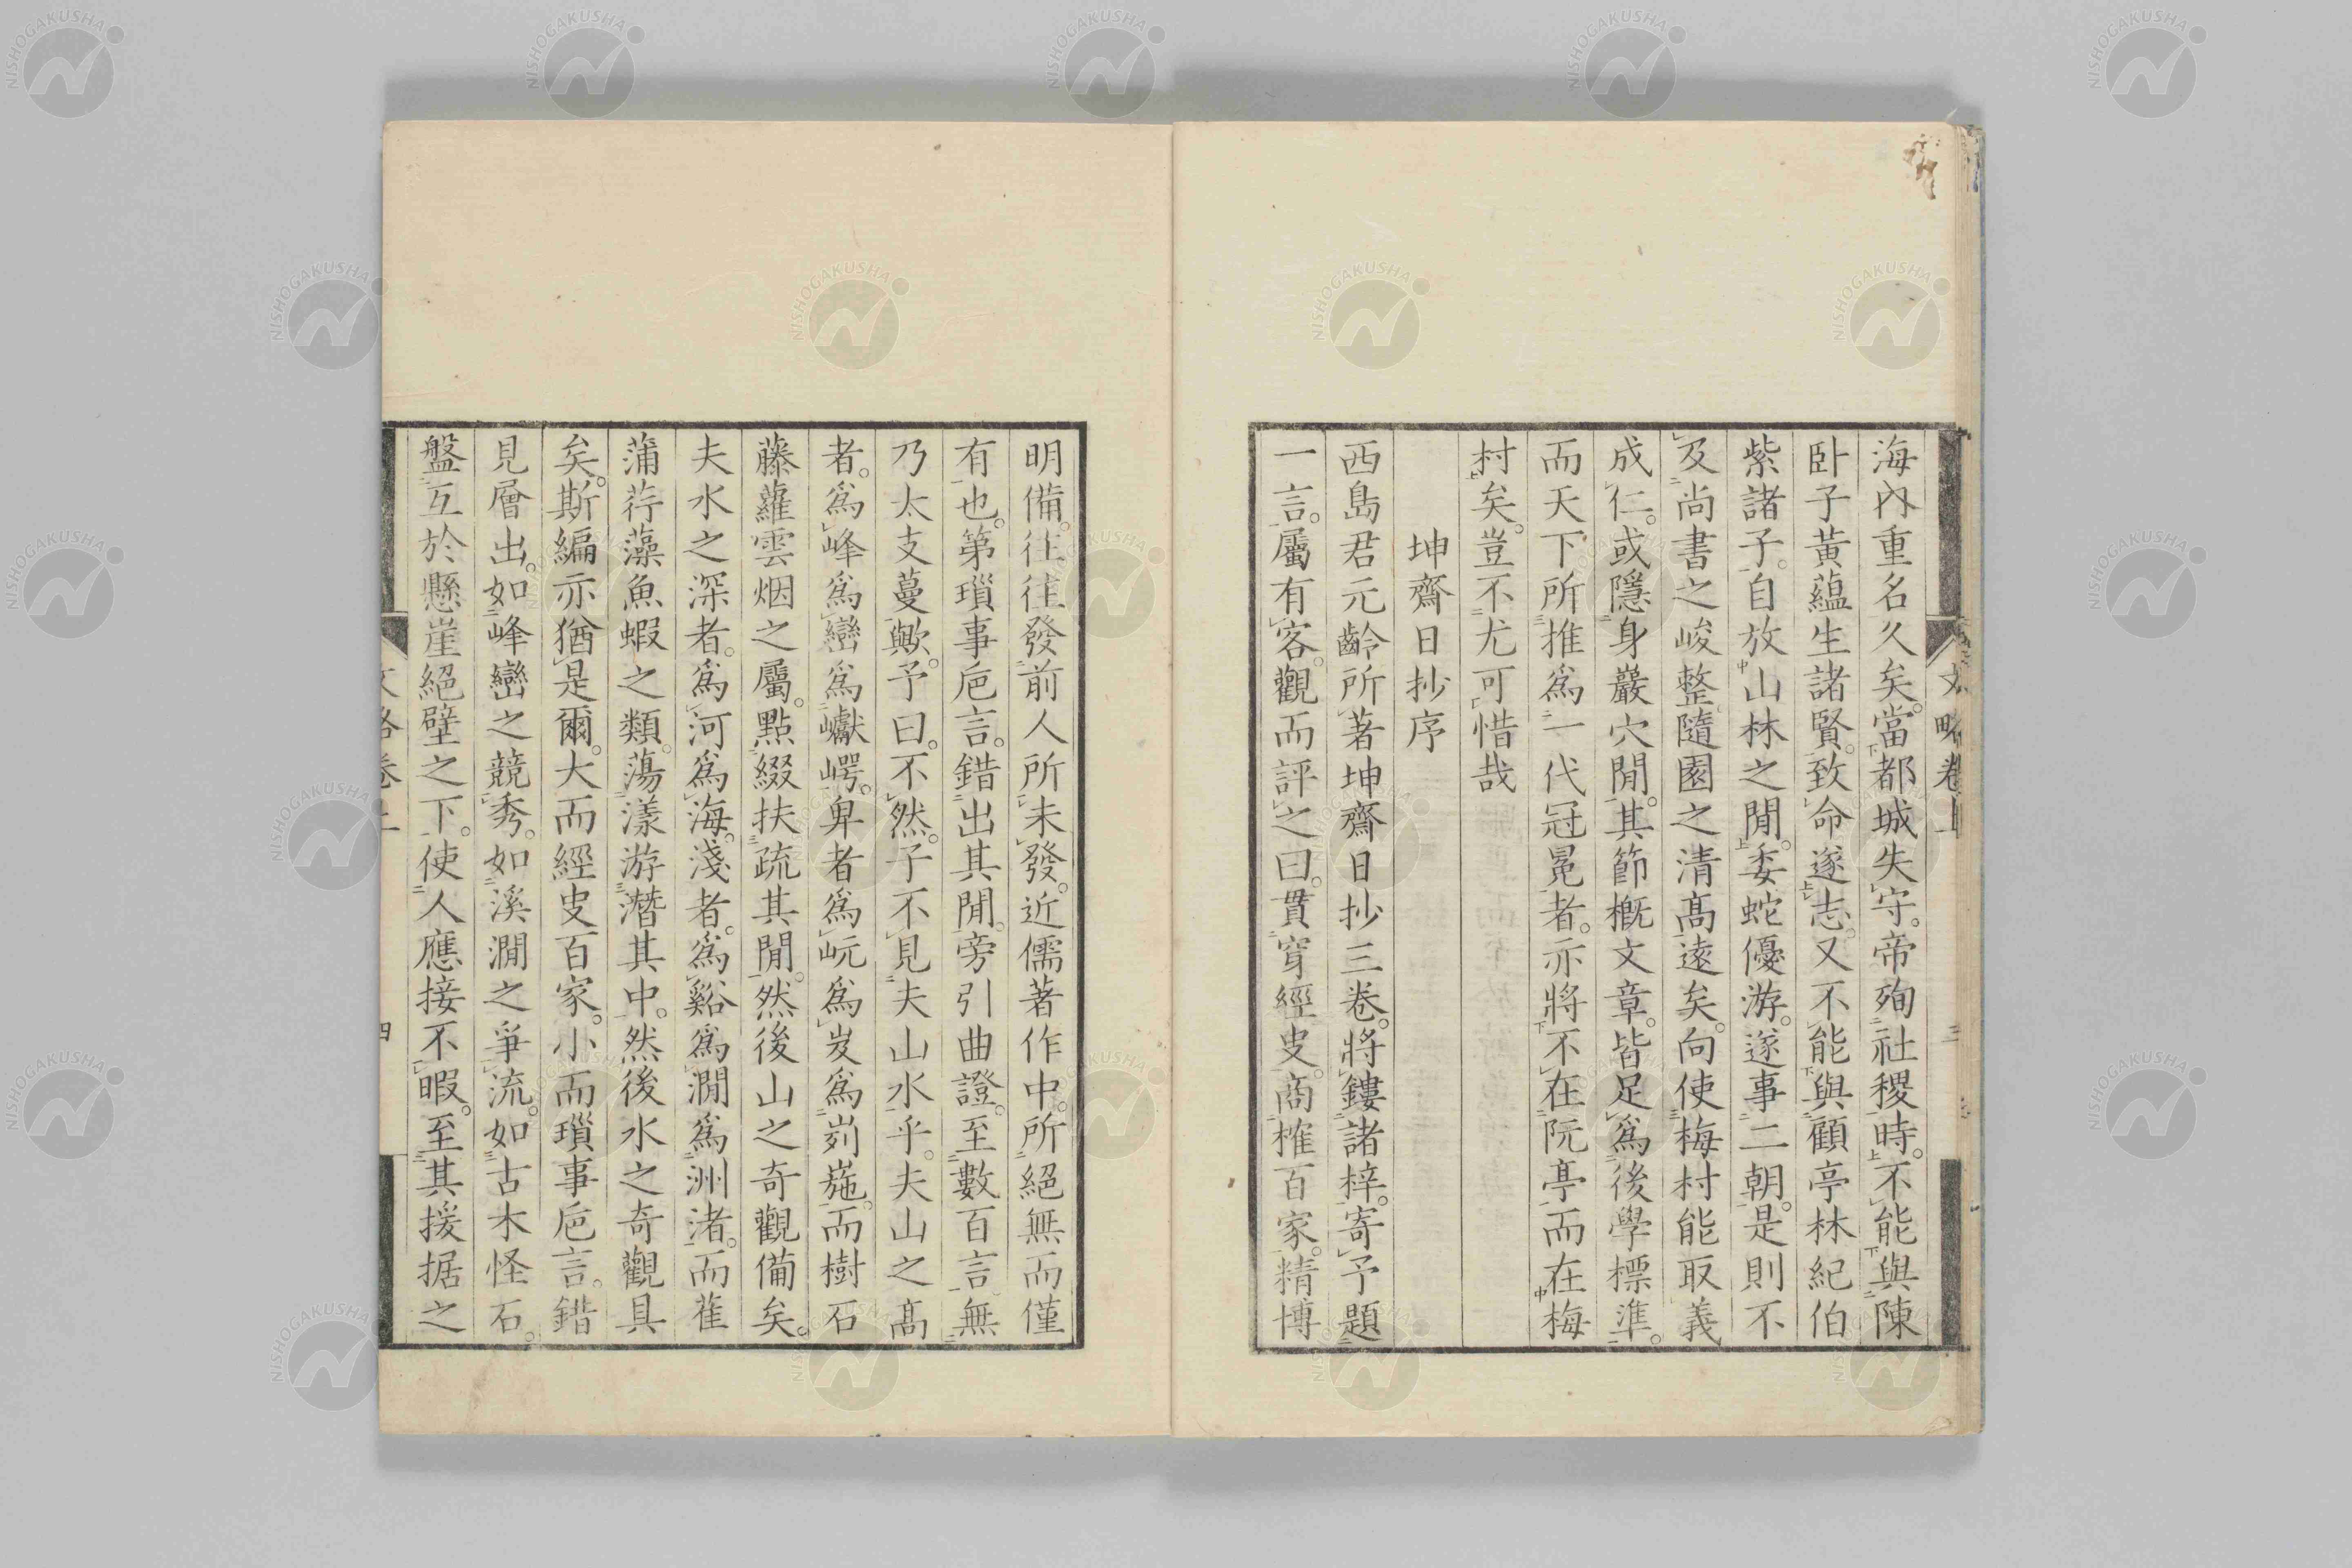 海內重名久矣。當都城失守。帝殉社稷時。不能與陳
卧子黃蘊生諸賢。致命遂志。又不能與顧亭林紀伯
紫諸子。自放山林之閒。委蛇優游。遂事二朝。是則不
及尚書之峻整隨園之清高遠矣。向使梅村能取義
成仁。或隱身巖穴閒。其節概文章。皆足爲後學標準。
而天下所推爲一代冠冕者。亦將不在阮亭而在梅
村矣。豈不尤可惜哉
坤齋日抄序
西島君元齡所著坤齋日抄三卷。將鏤諸梓。寄予題
一言。屬有客。觀而評之曰。貫穿經史。商榷百家。精博
明備。往往發前人所未發。近儒著作中。所絕無而僅
有也。第瑣事巵言。錯出其閒。旁引曲證。至數百言。無
乃太支蔓歟。予曰。不然。子不見夫山水乎。夫山之高
者。爲峰爲巒爲巘崿。卑者爲岏爲岌爲峛崺。而樹石
藤蘿雲烟之屬。點綴扶疏其閒。然後山之奇觀備矣。
夫水之深者。爲河爲海。淺者。爲谿爲澗爲洲渚。而萑
蒲荇藻魚蝦之類。蕩漾游潛其中。然後水之奇觀具
矣。斯編亦猶是爾。大而經史百家。小而瑣事巵言。錯
見層出。如峰巒之競秀。如溪澗之爭流。如古木怪石。
盤互於懸崖絕壁之下。使人應接不暇。至其援据之
文略卷上
三
文略卷上
四
NISHOGAKUSHA